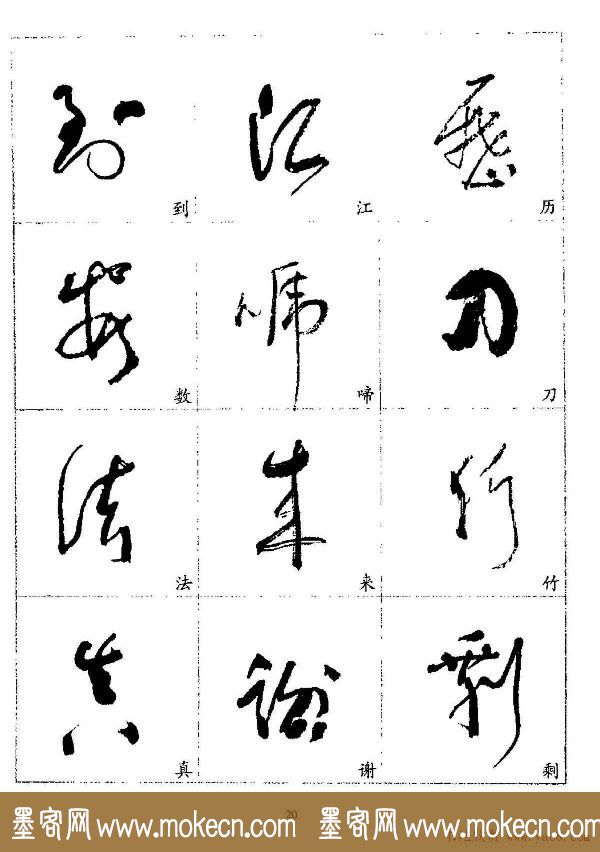 到 江 历
数 啼 刀
法 来 竹
真 谢 剩
20
墨客网 www.mokecn.com 墨客网 www.mokecn.com